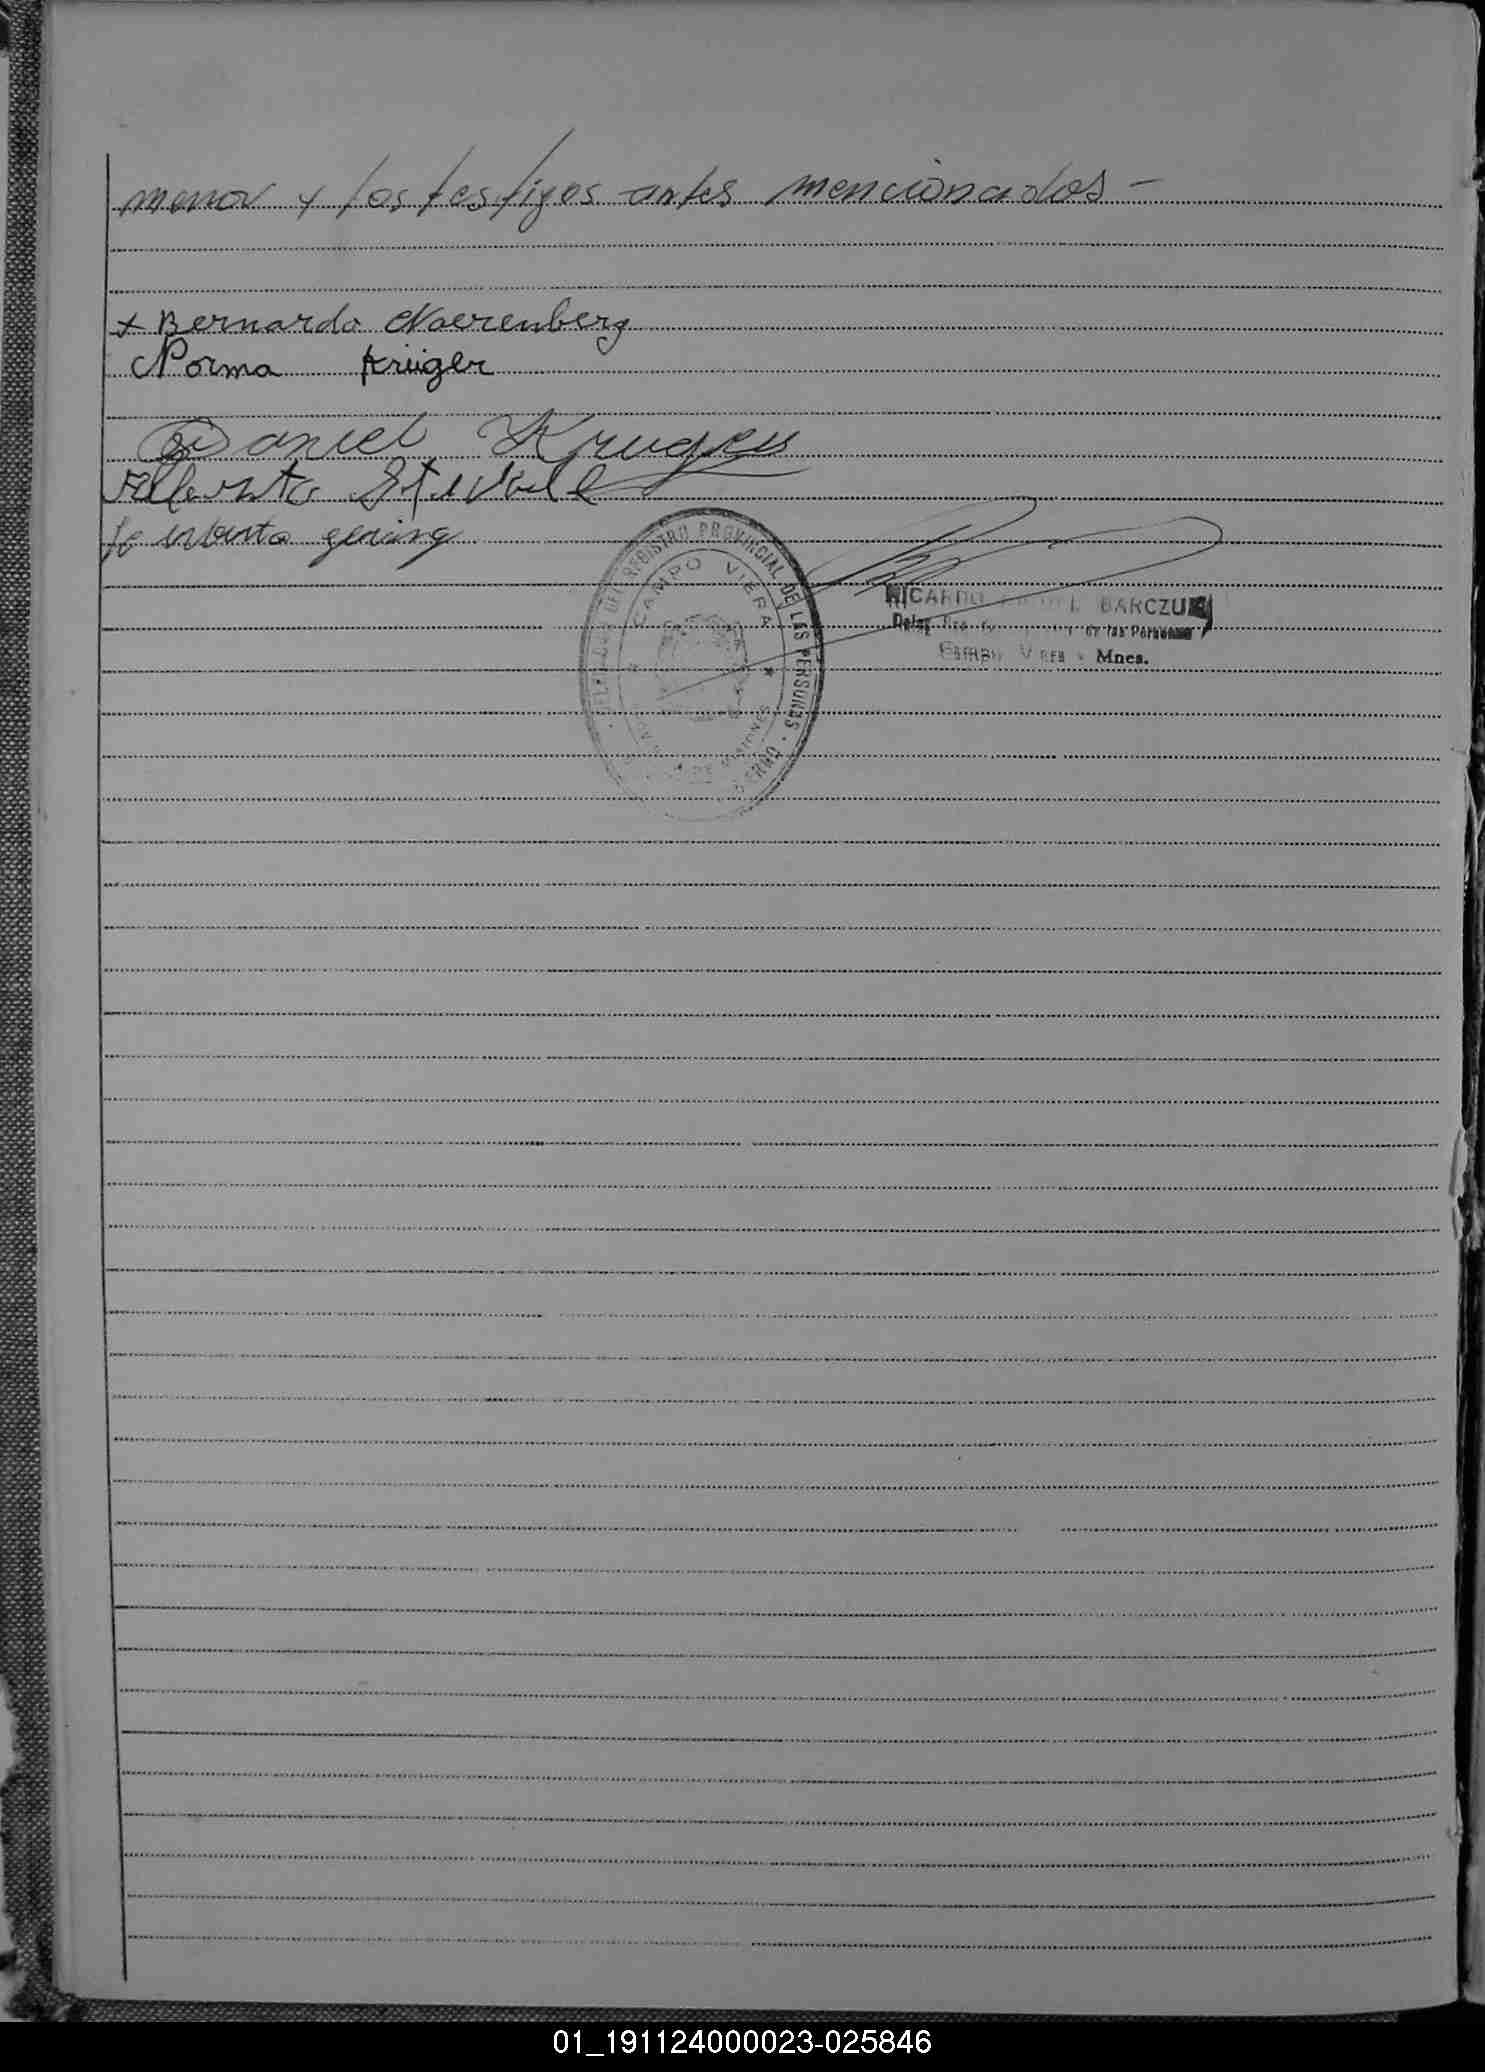 menor y los testigos antes mencionados -
x Bernardo Naerenberg
Norma Krüger
Daniel Kruger
Alberto
gering
REGISTRO PROVINCIAL DE LAS PERSONAS
CAMPO VIERA
MISIONES
RICARDO BARCZUK
Deleg. de las Personas
Campo Viera - Mnes.
01_191124000023-025846